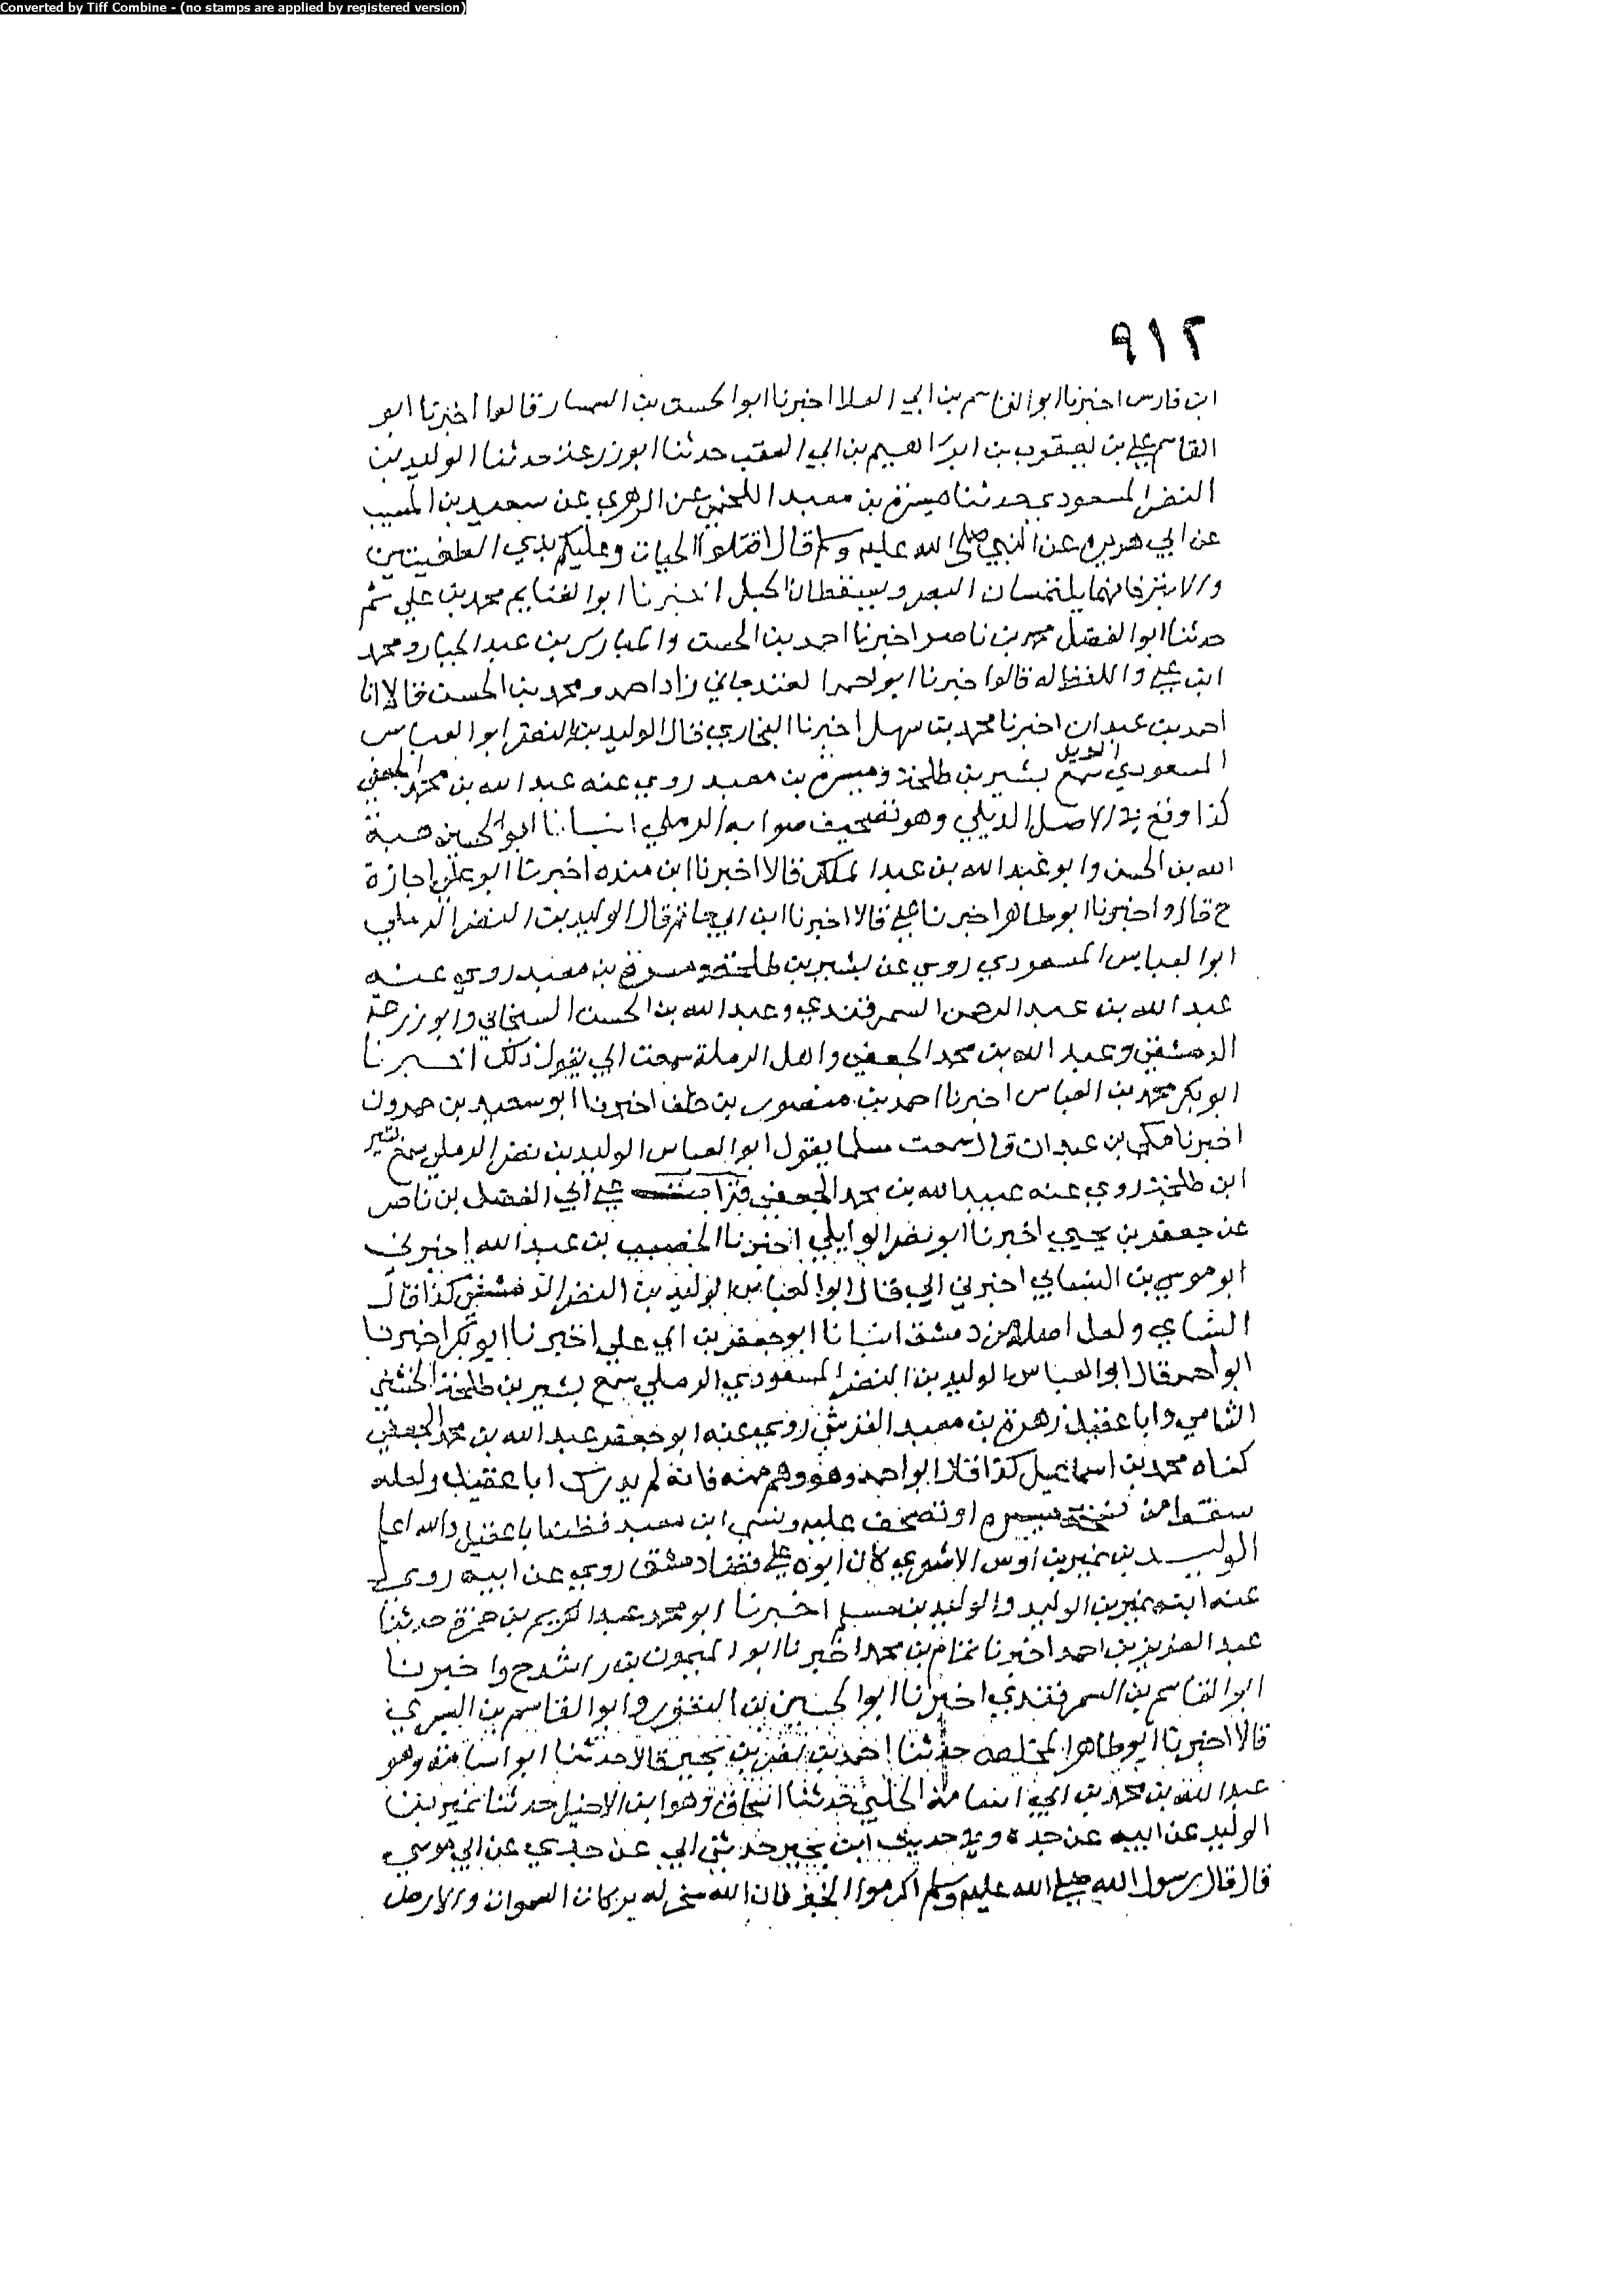 Converted by Tiff Combine - (no stamps are applied by registered version)
٩١٢
ابن فارس اخبرنا ابو القاسم بن ابي العلا اخبرنا ابو الحسن بن السمسار قالوا اخبرنا ابو
القاسم علي بن يعقوب بن ابراهيم بن ابي العقب حدثنا ابو زرعة حدثنا الوليد بن
النضر المسعودي حدثنا ميسرة بن معبد اللخمي عن الزهري عن سعيد بن المسيب
عن ابي هريره عن النبي صلى الله عليه وسلم قال اقتلوا الحيات وعليكم بذي الطفيتين
والابتر فانهما يلتمسان البصر ويسقطان الحبل اخبرنا ابو الغنايم محمد بن علي ثم
حدثنا ابو الفضل محمد بن ناصر اخبرنا احمد بن الحسن والمبارك بن عبد الجبار ومحمد
ابن علي واللفظ له قالوا اخبرنا ابو احمد الغندجاني زاد احمد ومحمد بن الحسن قالا انا
احمد بن عبدان اخبرنا محمد بن سهل اخبرنا البخاري قال الوليد بن النضر ابو العباس
المسعودي سمع بشير بن طلحة وميسرة بن معبد روي عنه عبد الله بن محمد الجعفي
كذا وقع في الاصل الديلي وهو تصحيف صوابه الرملي انبانا ابو الحسين هبة
الله بن الحسن وابو عبد الله بن عبد الملك قالا اخبرنا ابن منده اخبرنا ابو علي اجازة
ح قال واخبرنا ابو طاهر اخبرنا علي قالا اخبرنا ابن ابي حاتم قال الوليد بن النضر الرملي
ابو العباس المسعودي روي عن بشير بن طلحة ومسرة بن معبد روي عنه
عبد الله بن عبد الرحمن السمرقندي وعبد الله بن الحسن السنجاني وابو زرعة
الدمشقي وعبد الله بن محمد الجعفي واهل الرملة سمعت ابي يقول ذلك اخبرنا
ابو بكر محمد بن العباس اخبرنا احمد بن منصور بن خلف اخبرنا ابو سعيد بن حمدون
اخبرنا مكي بن عبدان قال سمعت مسلما يقول ابو العباس الوليد بن نضر الرملي سمع بشير
ابن طلحة روي عنه عبيد الله بن محمد الجعفي قرات علي ابي الفضل بن ناصر
عن جعفر بن يحيي اخبرنا ابو نصر الوايلي اخبرنا الخصيب بن عبد الله اخبرني
ابو موسي بن النساي اخبرني ابي قال ابو العباس الوليد بن النضر الدمشقي كذا قال
النساي ولعل اصله من دمشق انبانا ابو جعفر بن ابي علي اخبرنا ابو بكر اخبرنا
ابو احمد قال ابو العباس الوليد بن النضر المسعودي الرملي سمع بشير بن طلحة الخشني
الشامي وابا عقيل زهرة بن معبد القرشي روي عنه ابو جعفر عبد الله بن محمد الجعفي
كناه محمد بن اسماعيل كذا قال ابو احمد وهو وهم منه فانه لم يدرك ابا عقيل ولعله
سقط من نسخته ميسره او تصحف عليه وبقي ابن معبد فظنه ابا عقيل والله اعلم
الوليد بن نمير بن اوس الاشعري كان ابوه علي قضا دمشق روي عن ابيه روي
عنه ابنه نمير بن الوليد والوليد بن مسلم اخبرنا ابو محمد عبد الكريم بن حمزة حدثنا
عبد العزيز بن احمد اخبرنا تمام بن محمد اخبرنا ابو الميمون بن راشد ح واخبرنا
ابو القاسم بن السمرقندي اخبرنا ابو الحسين بن النقور وابو القاسم بن البسري
قالا اخبرنا ابو طاهر المخلص حدثنا احمد بن نصر بن بجير قالا حدثنا ابو اسامة وهو
عبد الله بن محمد بن ابي اسامة الحلبي حدثنا اسحاق وهو ابن الاخيل حدثنا نمير بن
الوليد عن ابيه عن جده وفي حديث ابن بجير حدثني ابي عن جدي عن ابي موسي
قال قال رسول الله صلى الله عليه وسلم اكرموا الخبز فان الله سخر له بركات السموات والارض